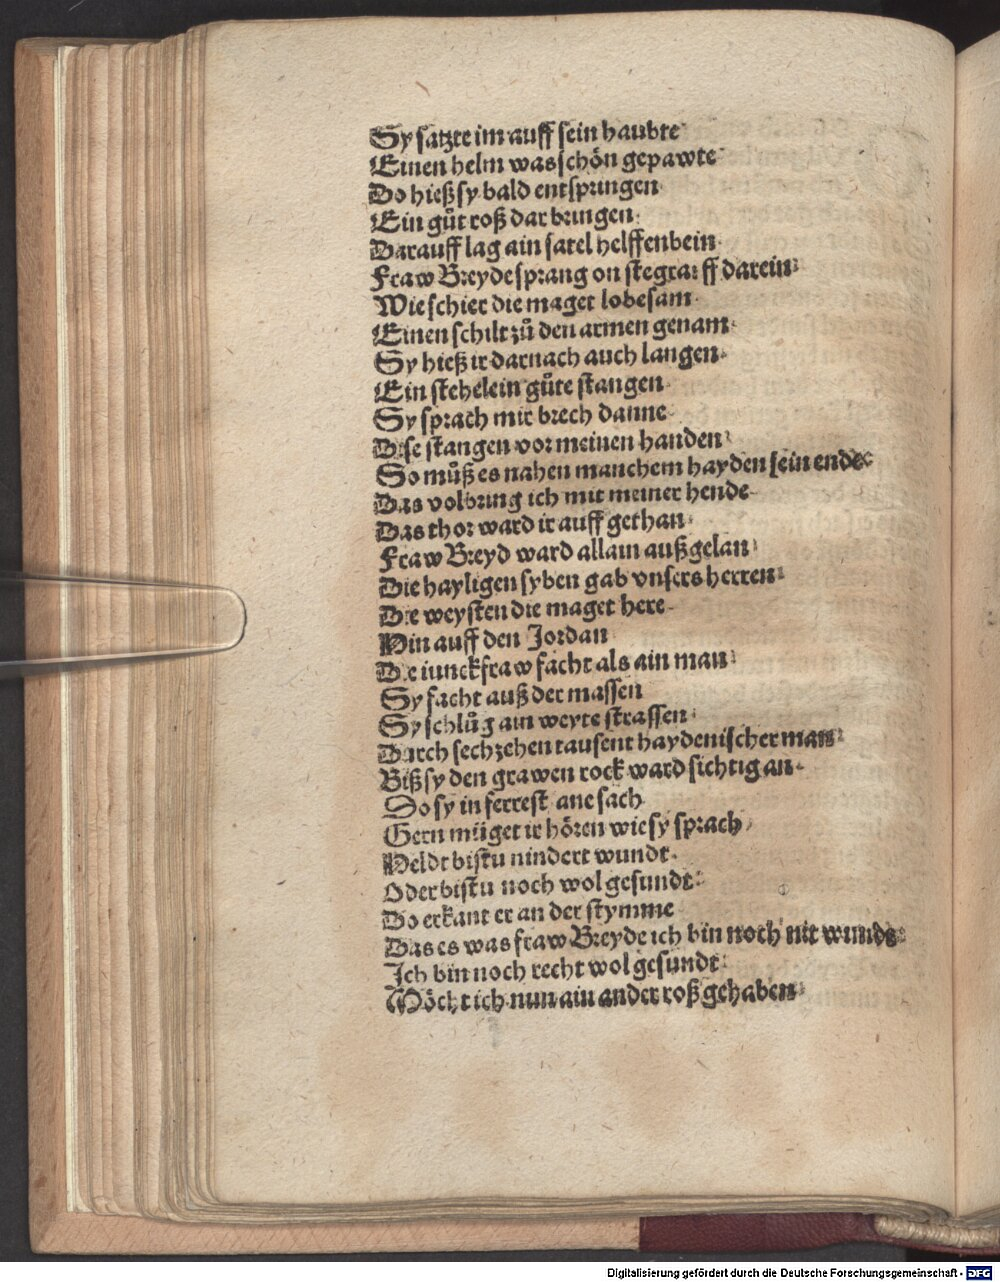 Sy satzte im auff sein haubte
Einen helm was schön gepawte
Do hieß sy bald entspringen
Ein gůt roß dar bringen
Darauff lag ain satel helffenbein
Fraw Breyde sprang on stegraiff darein
Wie schier die maget lobesam
Einen schilt zů den armen genam
Sy hieß ir darnach auch langen
Ein stehelein gůte stangen
Sy sprach mir brech danne
Dise stangen vor meinen handen
So můß es nahen manchem hayden sein ende
Das volbring ich mit meiner hende
Das thor ward ir auff gethan
Fraw Breyd ward allain außgelan
Die hayligen syben gab vnsers herren
Die weysten die maget here
Hin auff den Jordan
Die iunckfraw facht als ain man
Sy facht auß der massen
Sy schlůg ain weyte strassen
Durch sechzehen tausent haydenischer man
Biß sy den grawen rock ward sichtig an
Do sy in ferrest ane sach
Gern müget ir hören wie sy sprach
Heldt bistu nindert wundt
Oder bistu noch wol gesundt
Do erkant er an der stymme
Das es was fraw Breyde ich bin noch nit wundt
Ich bin noch recht wol gesundt
Möcht ich nun ain ander roß gehaben
Digitalisierung gefördert durch die Deutsche Forschungsgemeinschaft - DFG